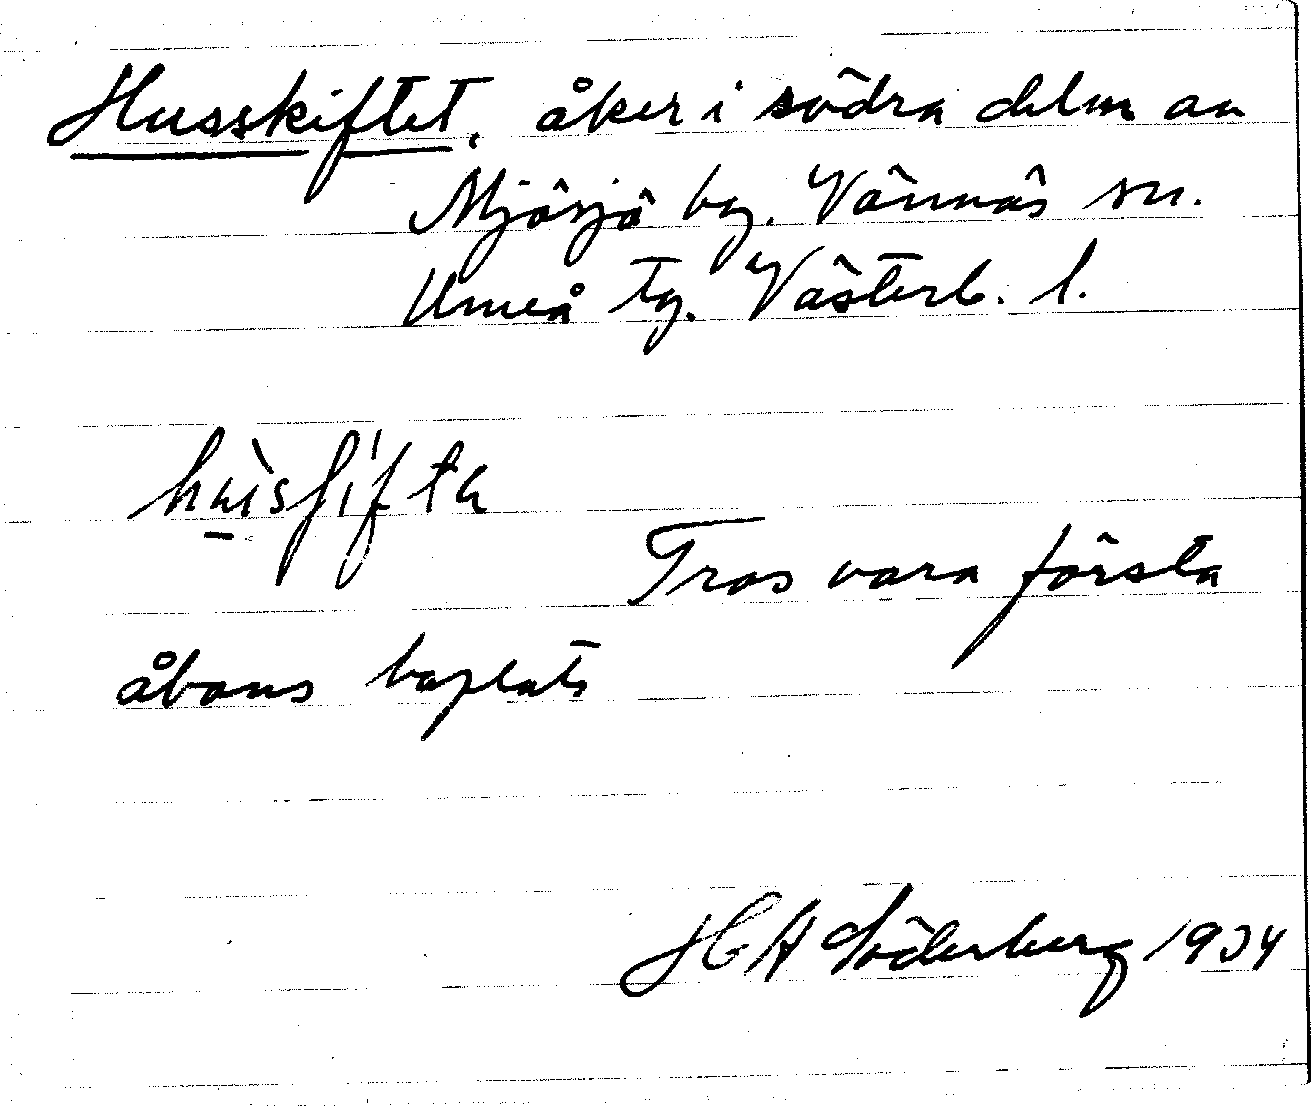 Husskiftet. åker i södra delen av
Mjösjö by. Vännäs sn.
Umeå tg. Västerb. l.
Tros vara första
åbons boplats
H A Söderberg 1934